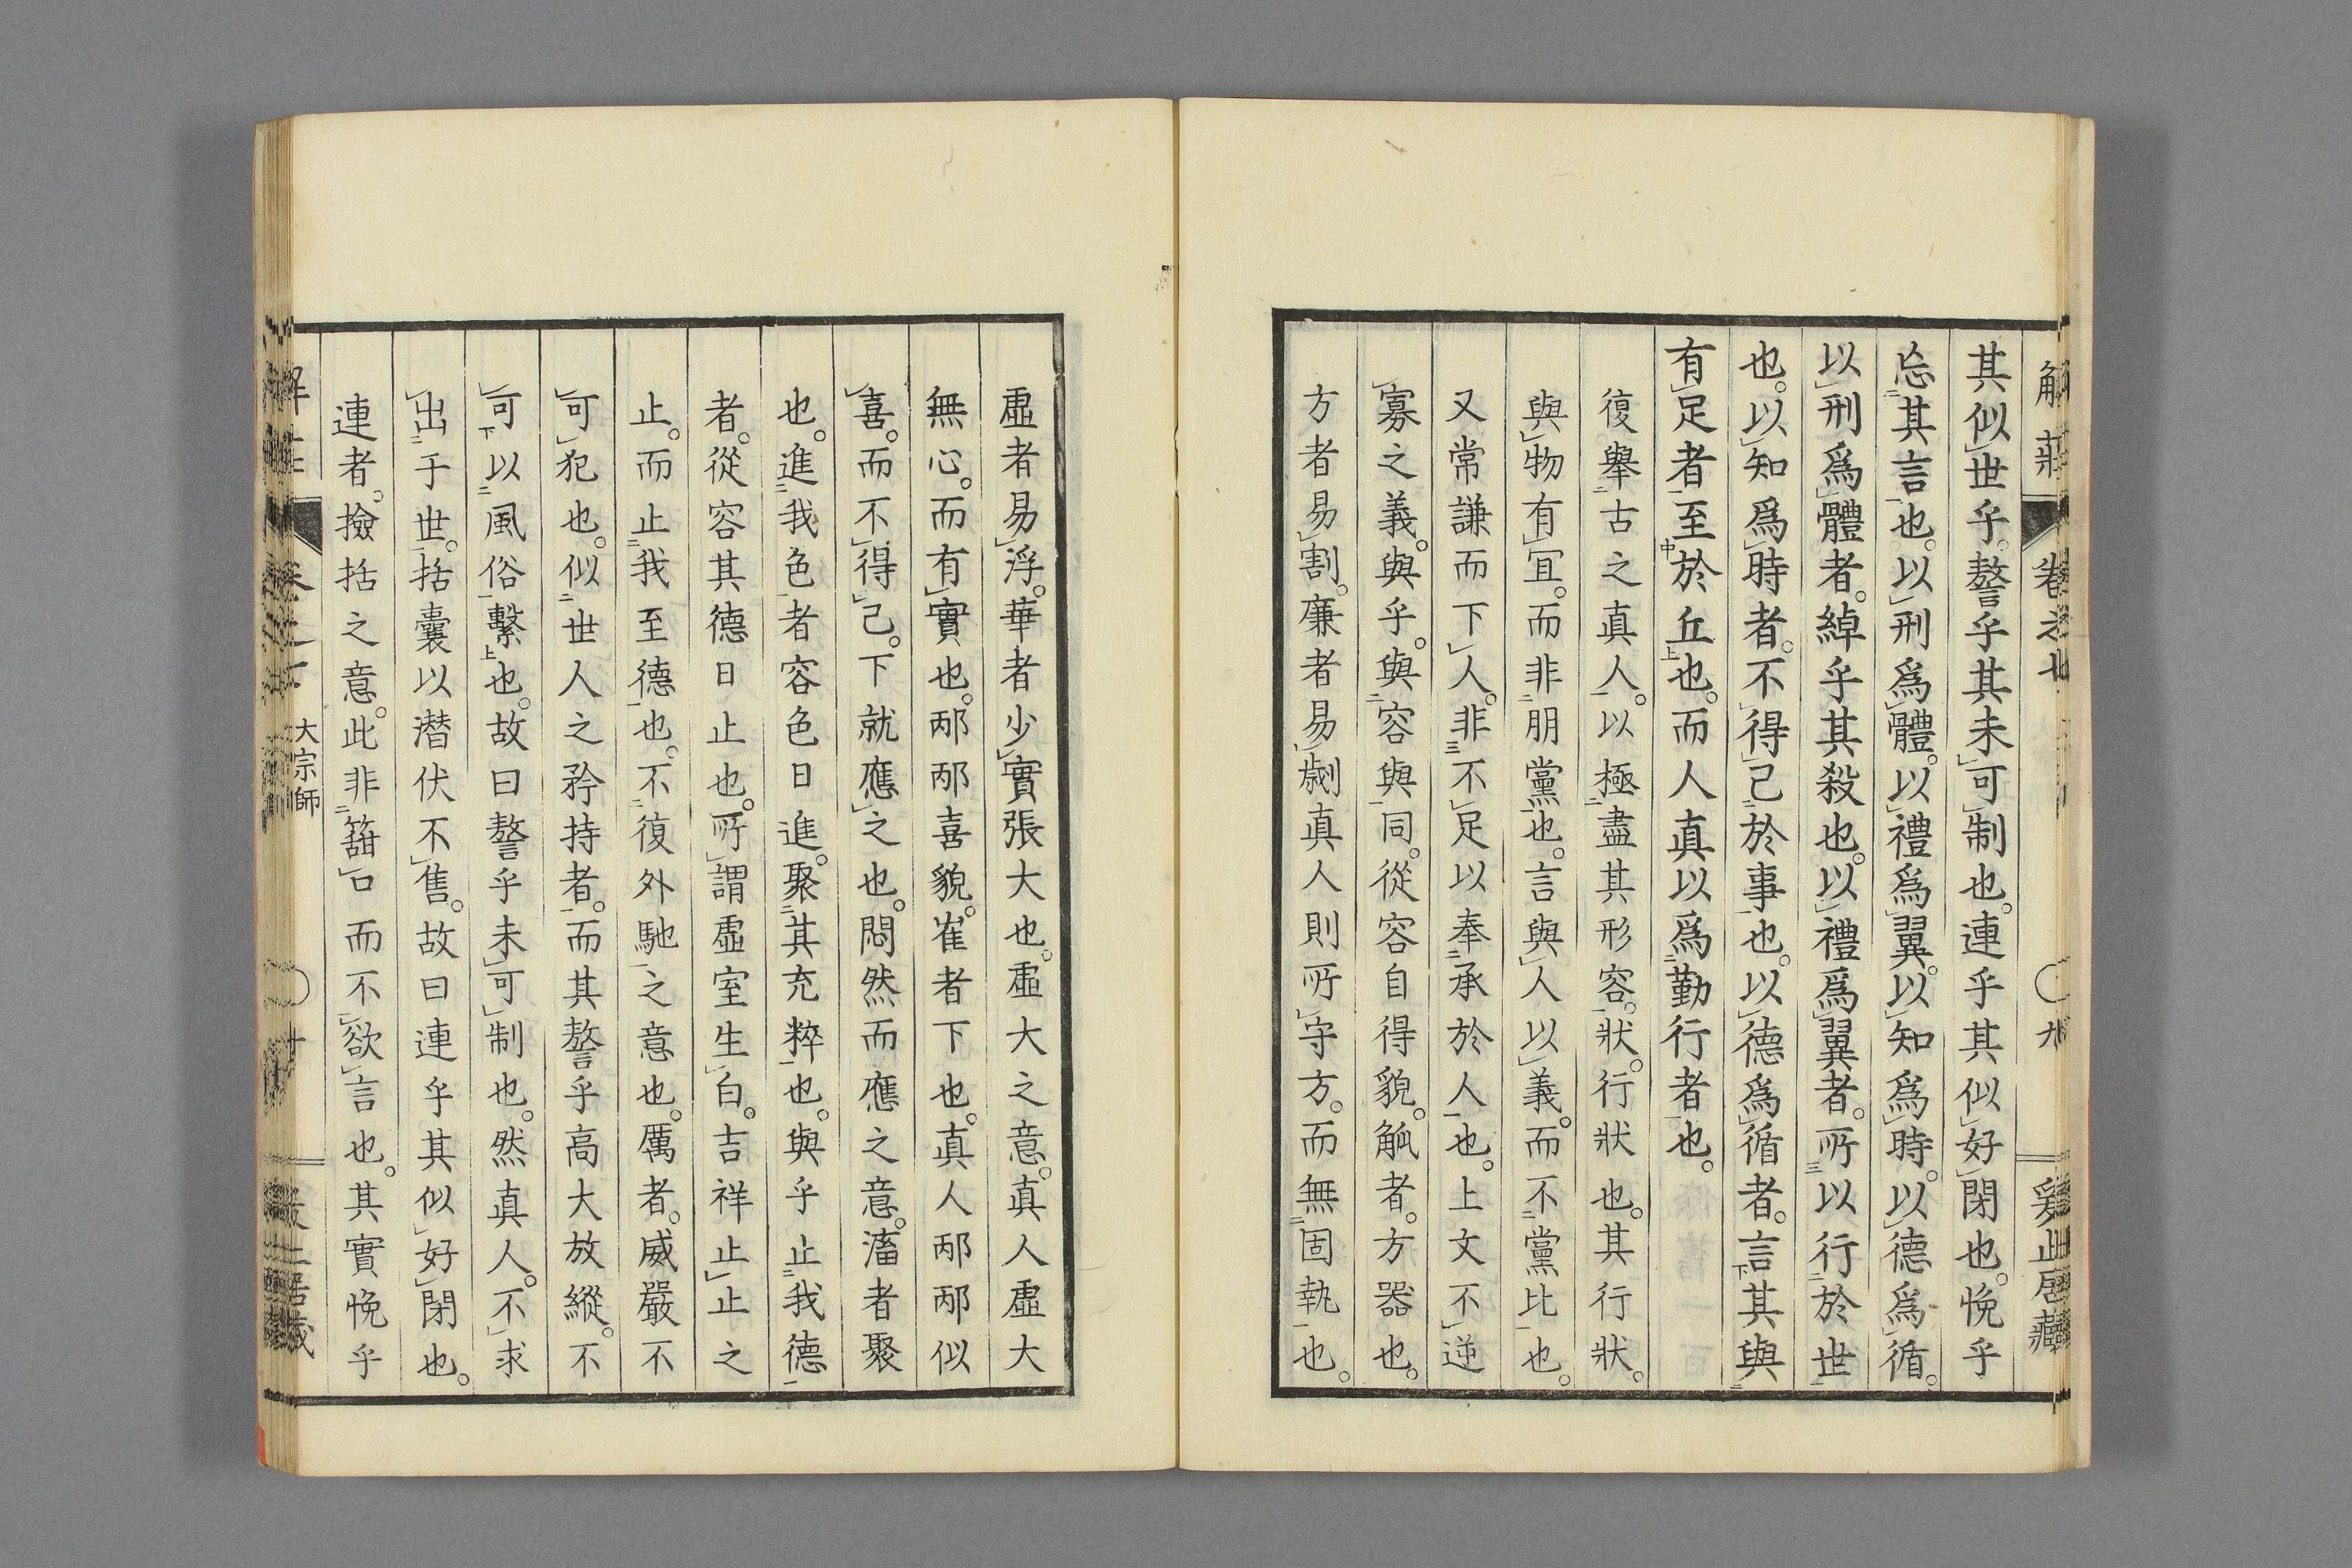 其似世乎。謷乎其未可制也。連乎其似好閉也。悗乎
忘其言也。以刑爲體。以禮爲翼。以知爲時。以德爲循。
以刑爲體者。綽乎其殺也。以禮爲翼者。所以行於世
也。以知爲時者。不得已於事也。以德爲循者。言其與
有足者至於丘也。而人真以爲勤行者也。
復舉古之真人。以極盡其形容。狀。行狀也。其行狀。
與物有冝。而非朋黨也。言與人以義。而不黨比也。
又常謙而下人。非不足以奉承於人也。上文不逆
寡之義。與乎。與容與同。從容自得貌。觚者。方器也。
方者易割。廉者易劌真人則所守方。而無固執也。
虛者易浮。華者少實張大也。虛大之意。真人虛大
無心。而有實也。邴邴喜貌。崔者下也。真人邴邴似
喜。而不得已。下就應之也。悶然而應之意。滀者聚
也。進我色者容色日進。聚其充粹也。與乎止我德
者。從容其德日止也。所謂虛室生白。吉祥止止之
止。而止我至德也。不復外馳之意也。厲者。威嚴不
可犯也。似世人之矜持者。而其謷乎高大放縱。不
可以風俗繫也。故曰謷乎未可制也。然真人。不求
出于世。括囊以潜伏不售。故曰連乎其似好閉也。
連者。撿括之意。此非箝口而不欲言也。其實悗乎
大宗師